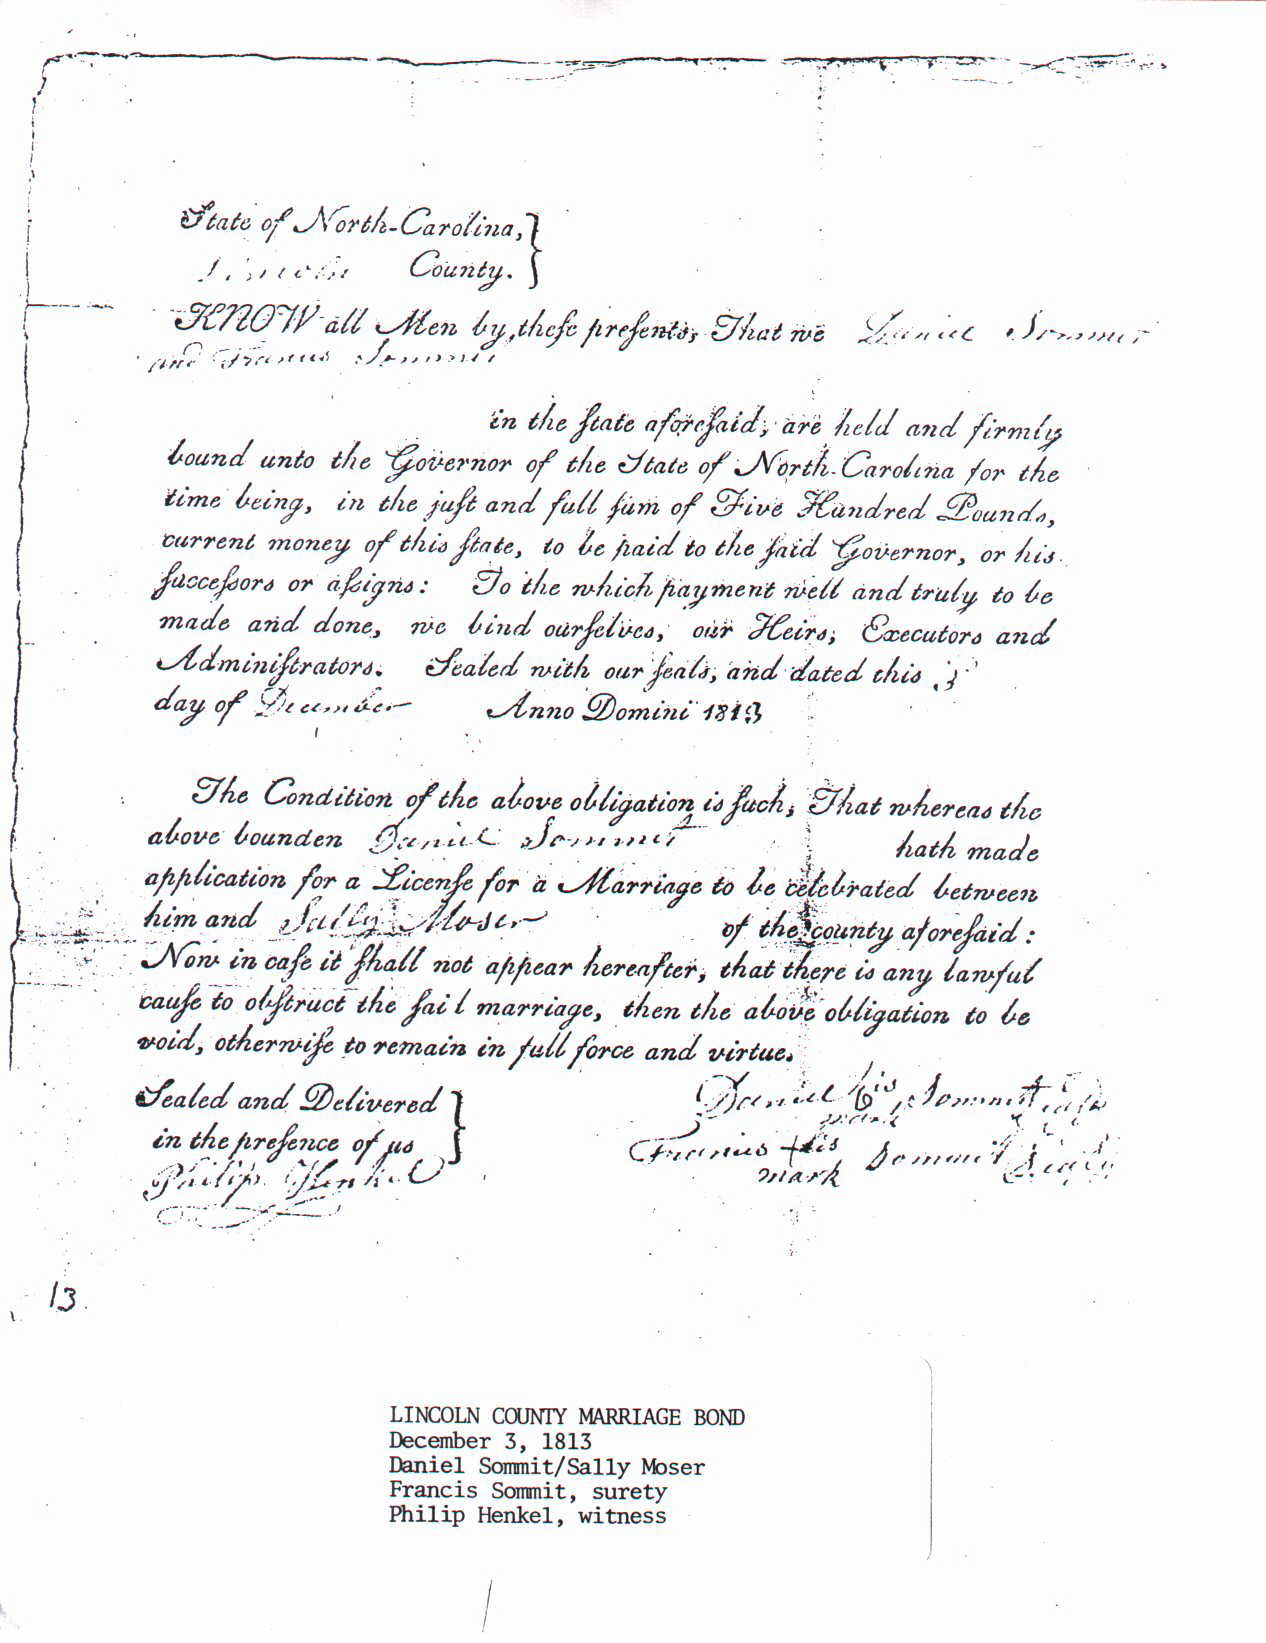 State of North-Carolina, }
Lincoln County. }
KNOW all Men by theſe preſents, That we Daniel Sommit
and Francis Sommit
in the ſtate aforeſaid, are held and firmly
bound unto the Governor of the State of North-Carolina for the
time being, in the juſt and full ſum of Five Hundred Pounds,
current money of this ſtate, to be paid to the ſaid Governor, or his
ſucceſsors or aſsigns: To the which payment well and truly to be
made and done, we bind ourſelves, our Heirs, Executors and
Adminiſtrators. Sealed with our ſeals, and dated this 3
day of December Anno Domini 1813
The Condition of the above obligation is ſuch, That whereas the
above bounden Daniel Sommit hath made
application for a Licenſe for a Marriage to be celebrated between
him and Sally Moser of the county aforeſaid:
Now in caſe it ſhall not appear hereafter, that there is any lawful
cauſe to obſtruct the ſaid marriage, then the above obligation to be
void, otherwiſe to remain in full force and virtue.
Sealed and Delivered } Daniel his Sommit Seal
mark
in the preſence of us Francis his Sommit Seal
mark
Philip Henkel
13
LINCOLN COUNTY MARRIAGE BOND
December 3, 1813
Daniel Sommit/Sally Moser
Francis Sommit, surety
Philip Henkel, witness